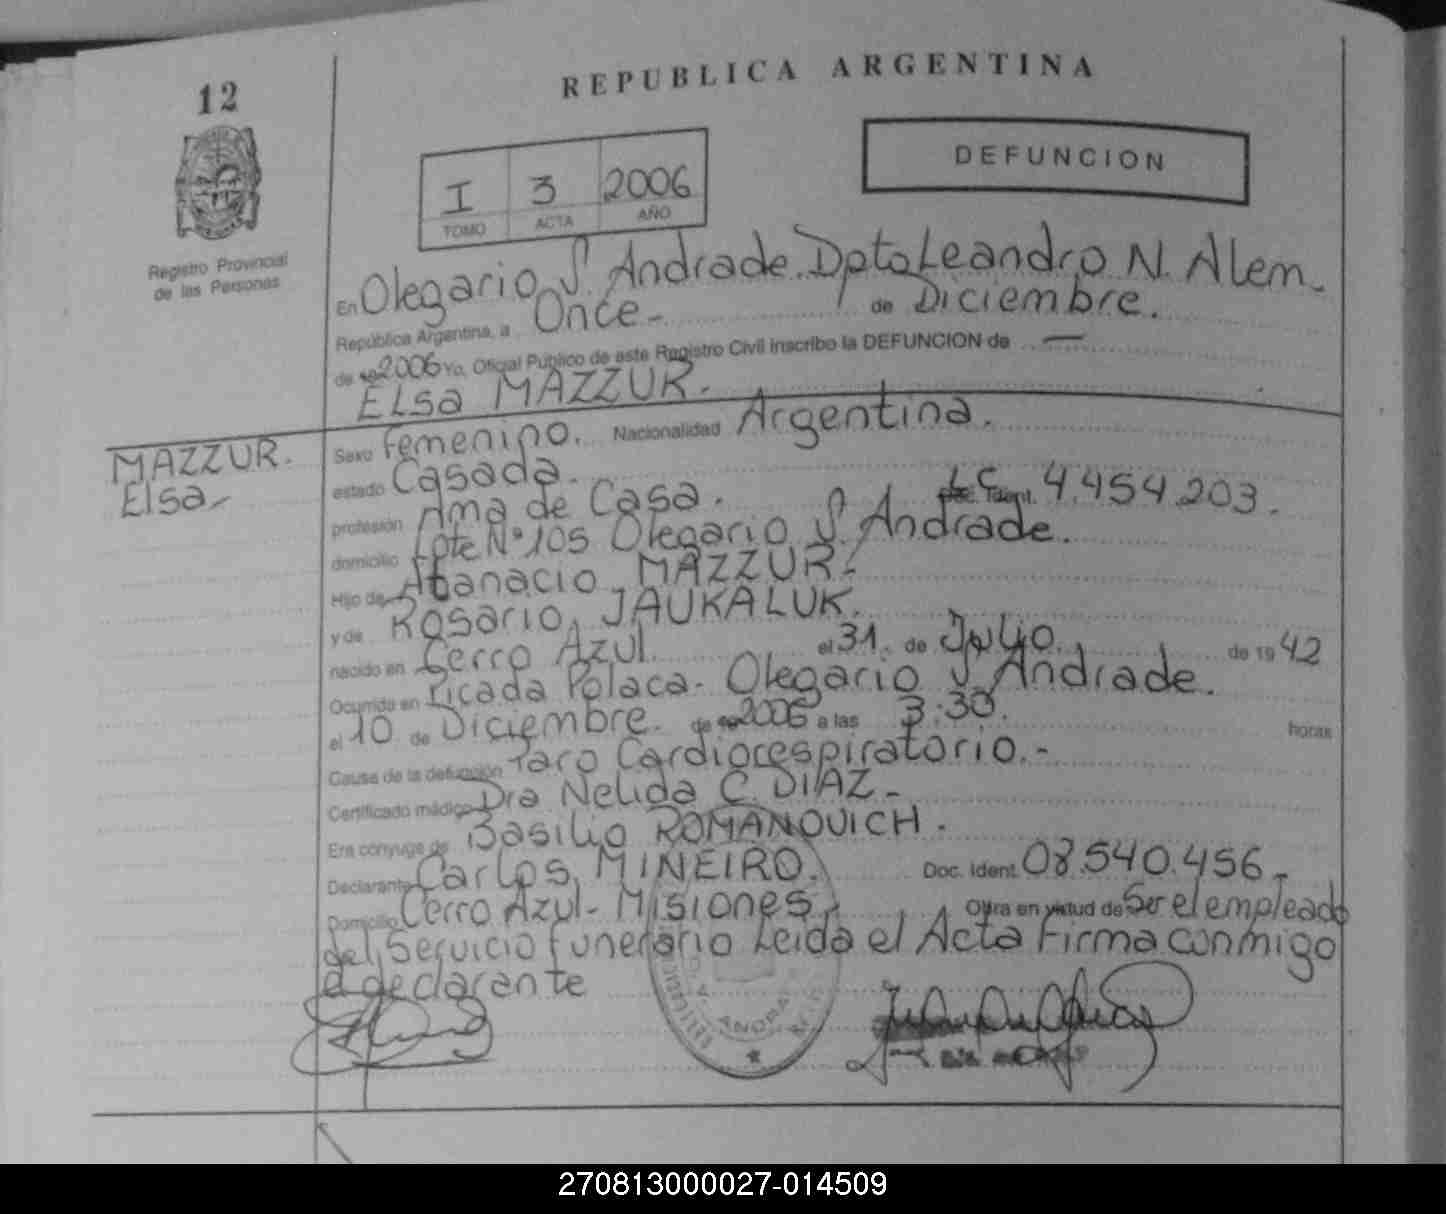 12
REPUBLICA ARGENTINA
DEFUNCION
I 3 2006
TOMO ACTA AÑO
Registro Provincial
de las Personas
En Olegario V. Andrade. Dpto Leandro N. Alem.
República Argentina, a Once - de Diciembre.
de 2006 Yo, Oficial Público de este Registro Civil inscribo la DEFUNCION de —
Elsa MAZZUR.
MAZZUR.
Elsa-
Sexo femenino. Nacionalidad Argentina.
estado Casada.
profesión Ama de Casa. LC Ident. 4.454.203.
domicilio Lote N° 105 Olegario V. Andrade.
Hijo de Atanacio MAZZUR-
y de Rosario JAUKALUK.
nacido en Cerro Azul el 31. de Julio. de 1942
Ocurrida en Picada Polaca- Olegario V Andrade.
el 10 de Diciembre. de 2006 a las 3:30. horas
Causa de la defunción Paro Cardiorespiratorio.-
Certificado médico Dra Nelida C. DIAZ-
Era cónyuge de Basilio ROMANOVICH.
Declarante Carlos MINEIRO. Doc. Ident. 08.540.456-
Domicilio Cerro Azul- Misiones- Obra en virtud de Ser el empleado
del Servicio funerario Leida el Acta Firma conmigo
el declarante
270813000027-014509